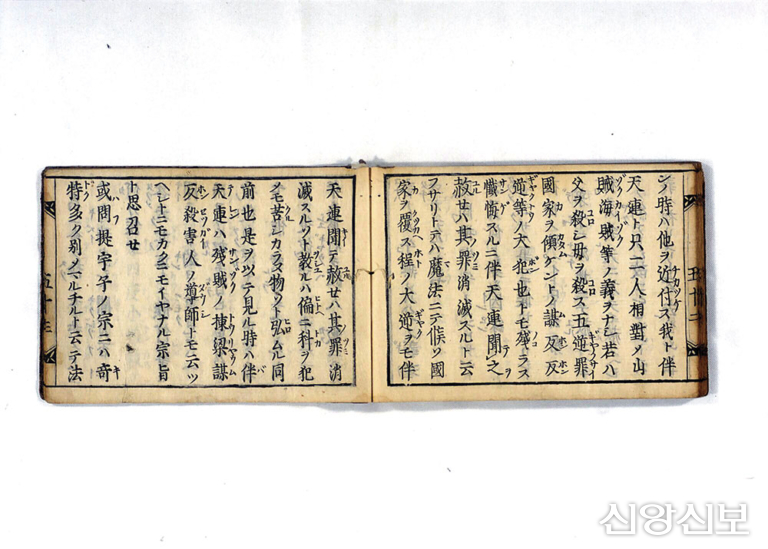 五十二
ンノ時ハ他ヲ近付ス我ト伴
天連ト只二人相對メ山
賊海賊等ノ義ヲナシ若ハ
父ヲ殺シ母ヲ殺ス五逆罪
國家ヲ傾ケントノ謀反反
逆等ノ大犯也トモ殘ラス
懺悔スルニ伴天連聞之
赦セハ其罪消滅スルト云
フサリトテハ魔法ニテ候ツ國
家ヲ覆ス程ノ大逆ヲモ伴
天連聞テ赦セハ其罪消
滅スルソト教ルハ偏ニ科ヲ犯
メモ苦シカラス物ソト弘ムル同
前也是ヲ以テ見ル時ハ伴
天連ハ殘賊ノ棟梁謀
反殺害人ノ導師トモ云ツ
ヘシトニモカクニモイヤナル宗旨
ト思召セ
或問提宇子ノ宗ニハ奇
特多ク別メマルチルト云テ法
五十三
신앙신보